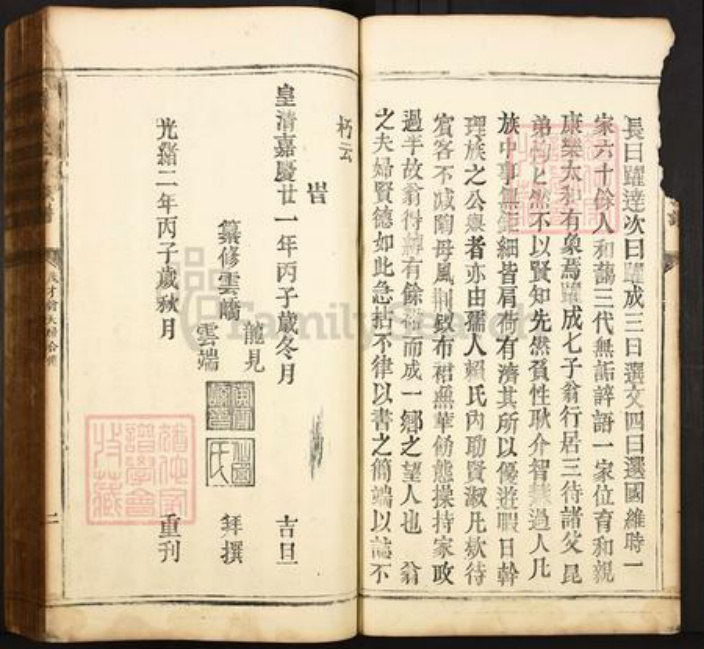 長曰躍達次曰躍成三曰選文四曰選國維時一
家六十餘人和藹三代無詬誶語一家位育和親
康樂太和有象焉躍成七子翁行居三待諸父昆
弟均匕然不以賢知先然賁性耿介智慧過人凡
族中事無鉅細皆肩荷有濟其所以優遊暇日幹
理族之公舉者亦由孺人賴氏內助賢淑凡欵待
賓客不減陶母風荆釵布裙無華飭態操持家政
過半故翁得綽有餘裕而成一鄉之望人也 翁
之夫婦賢德如此急拈不律以書之簡端以誌不
朽云
旹
皇清嘉慶廿一年丙子歲冬月 吉旦
纂修雲嶠 龍見 雲端 拜撰
光緒二年丙子歲秋月 重刊
FamilySearch